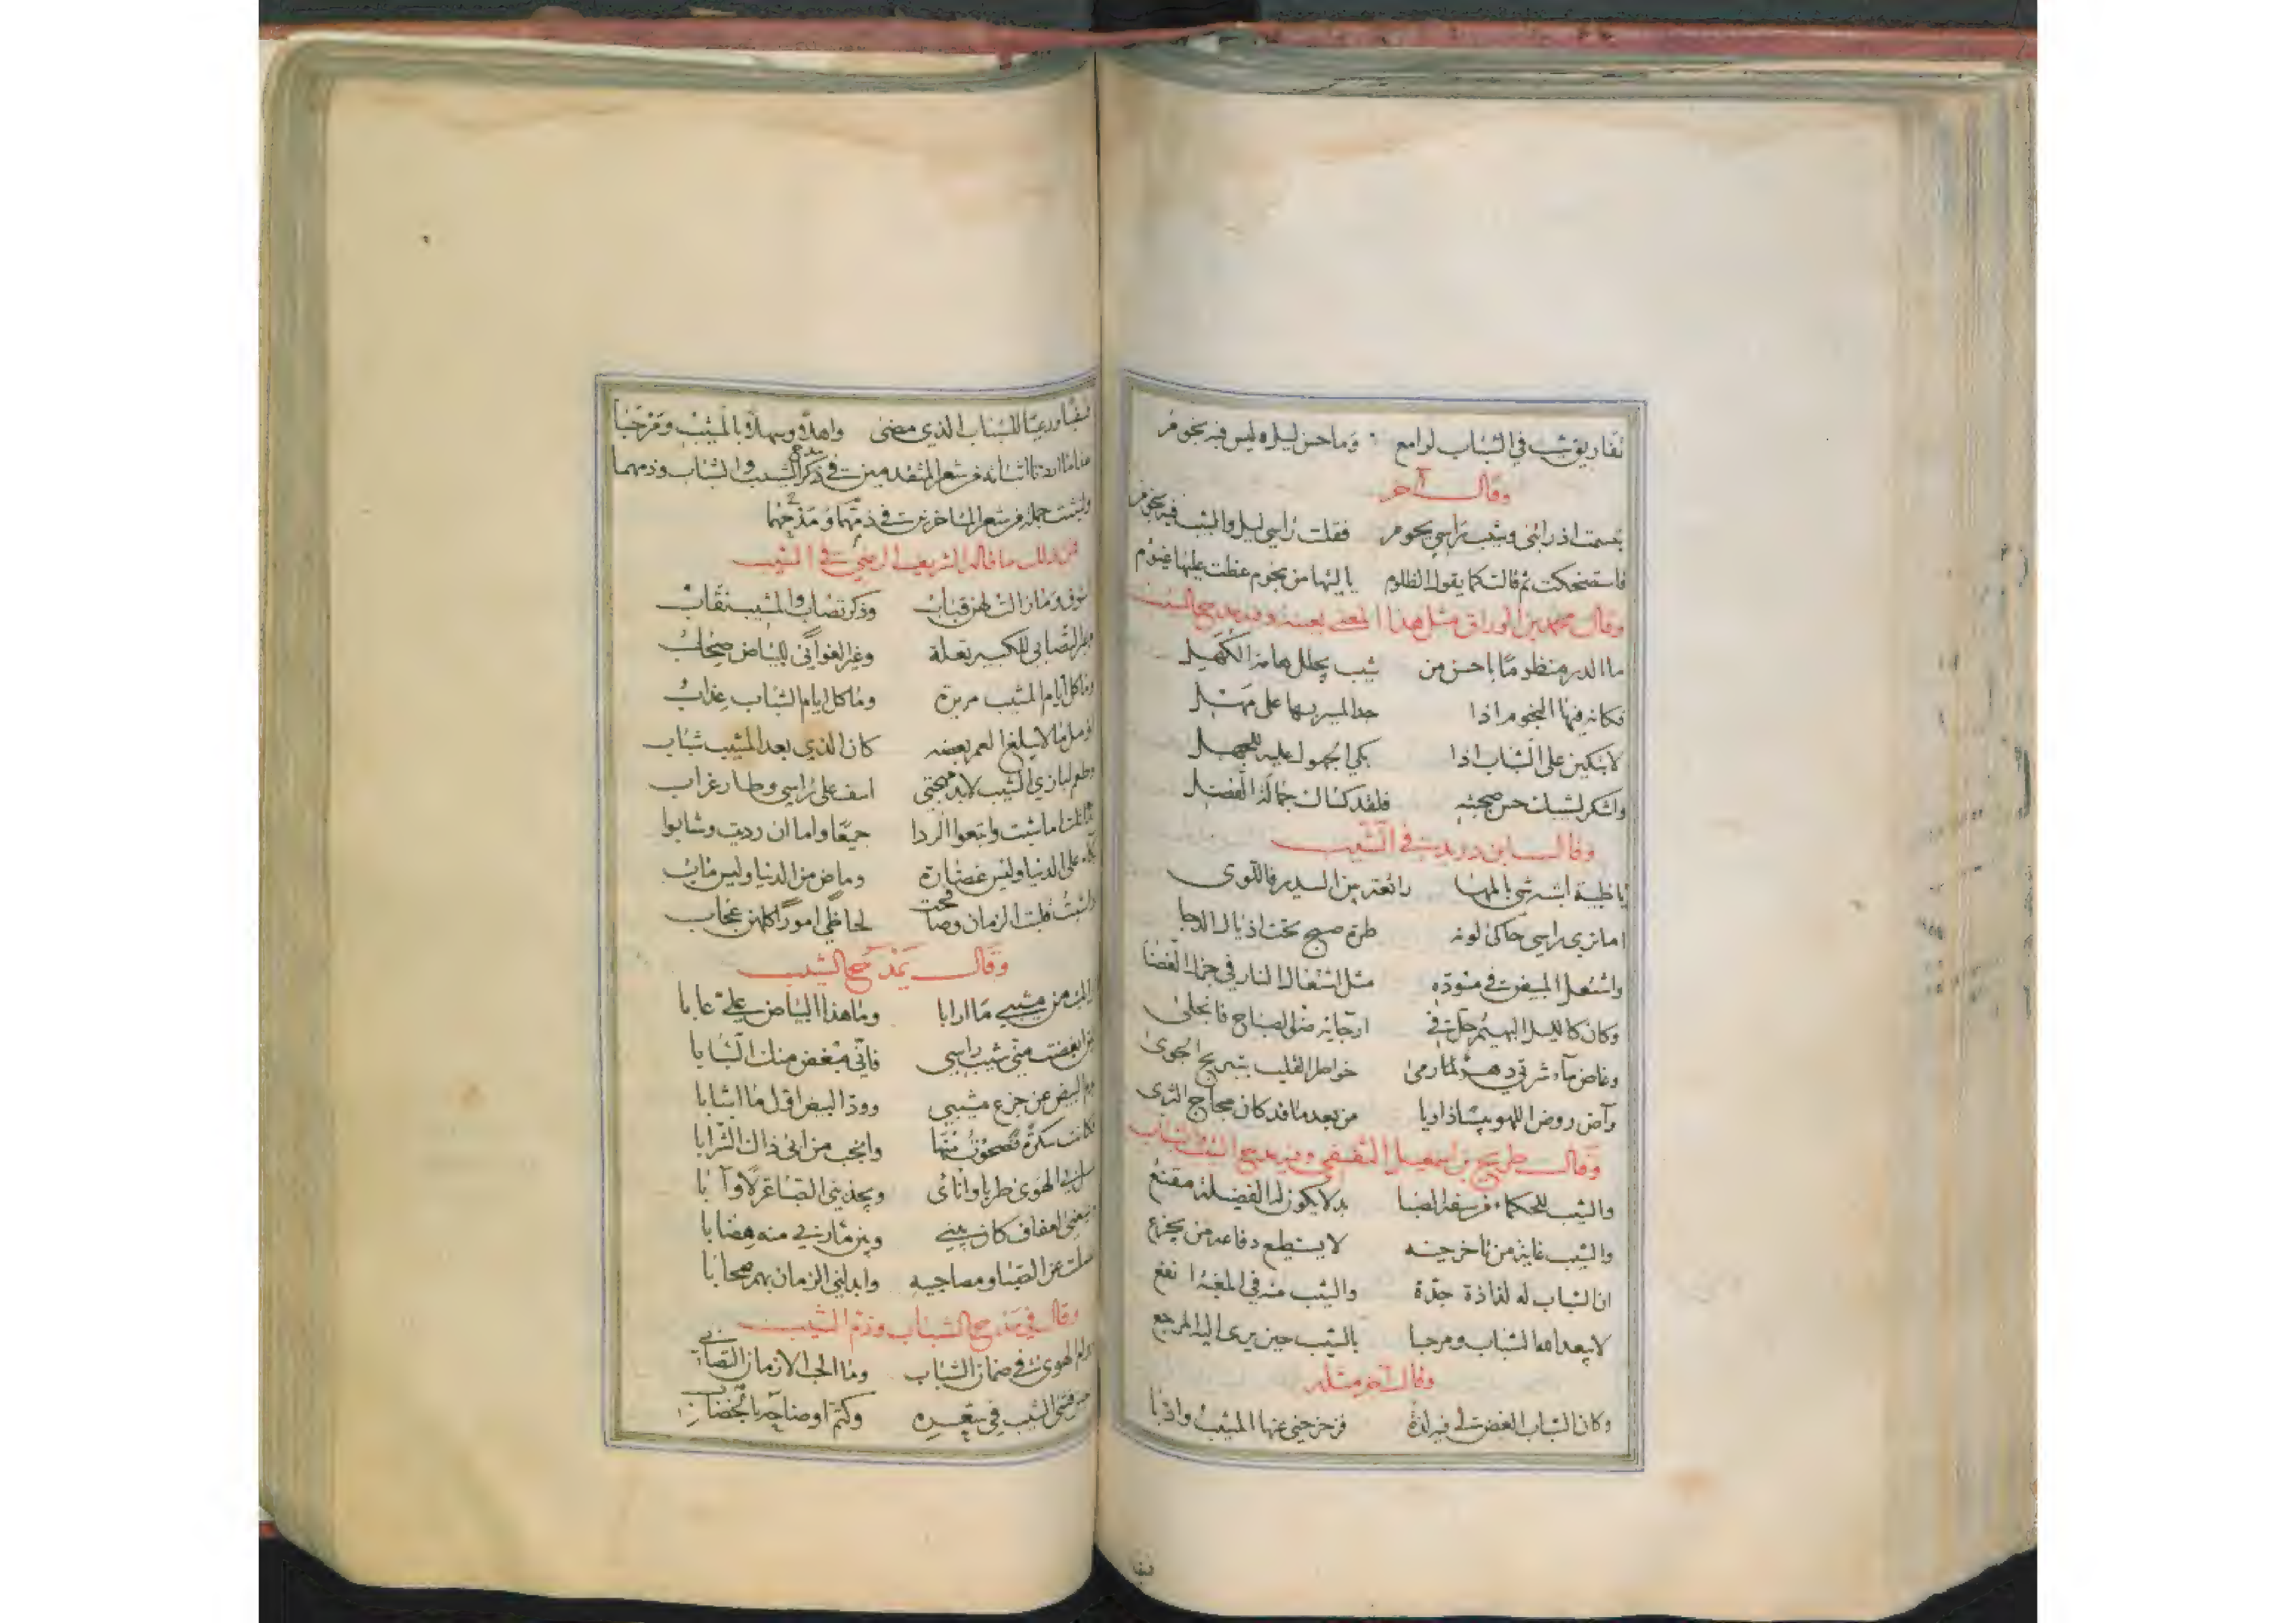 تفاريق شيب في الشباب لوامع وما حسن ليل ليس فيه نجوم
وقال آخر
تبسمت اذ راتنى وشيب براسي نجوم فقلت راسي ليل والشيب فيه نجوم
فاستضحكت ثم قالت كما يقول الظلوم يا ليتها من نجوم غطت عليها غيوم
وقال محمد بن الوراق مثل هذا المعنى بعينه وفيه مدح الشيب
ما الدر منظوما باحسن من شيب يجلل هامة الكهل
فكانه فيها النجوم اذا جد المسير بها على مهل
لا تبكين على الشباب اذا بكى الجهول عليه للجهل
واشكر لشيبك حسن صحبته فلقد كساك جلالة الفضل
وقال ابن دريد في الشيب
يا ظبية اشبه شي بالمها راتعة بين السدير فاللوى
اما تري راسي حاكى لونه طرة صبح تحت اذيال الدجا
واشتعل المبيض في مسوده مثل اشتعال النار في جزل الغضا
وكان كالليل البهيم حل في ارجائه ضوء الصباح فانجلى
وغاض ماء شرتي دهر رمى خواطر القلب بتبريح الجوى
وآض روض اللهو يبسا ذاويا من بعد ما قد كان مجاج الثرى
وقال طريح بن اسمعيل الثقفي وفيه مدح الشيب والشباب
والشيب للحكماء من سفه الصبا بدلا يكون له الفضيلة مقنع
والشيب غاية من تاخر حينه لا يستطيع دفاعه من يجزع
ان الشباب له لذاذة جدة والشيب منه في المغبة انفع
لا يبعد الله الشباب ومرحبا بالشيب حين يرى اليه المرجع
وقال آخر مثله
وكان الشباب الغض لي فيه لذة فزحزحني عنها المشيب وادبا
فسقيا
فسقيا ورعيا للشباب الذي مضى واهلا وسهلا بالمشيب ومرحبا
هذا ما اردنا اثباته من شعر المتقدمين في ذكر مدح الشيب والشباب وذمهما
ولنثبت جملة من شعر المتاخرين في ذمهما ومدحهما
فمن ذلك ما قاله الشريف الرضي في الشيب
وذكر تصاب والمشيب نقاب
وغير التصابى للكبير تعلة وغير الغواني للبياض صحاب
وما كل ايام المشيب مريرة وما كل ايام الشباب عذاب
اؤمل ما لا يبلغ العمر بعضه كان الذي بعد المشيب شباب
وطعم لبازي الشيب لابد مهجتي اسف على راسي وطار غراب
جميعا واما ان رديت وشابوا
على الدنيا وليس غضارة وماض من الدنيا وليس مآب
لحاظي امورا كلهن عجاب
وقال يمدح الشيب
من مشيبي ما ارابا وما هذا البياض علي عابا
ابغضت مني شيب راسي فاني مبغض منك الشبابا
البيض من جزع مشيبي وود البيض اول ما اشابا
فكانت سكرة فصحوت منها وانجب من ابى ذاك الشرابا
الهوى طربا وانائ ويجذبني الصبا غزلا وآبا
عفاف كان بيني وبين مآربي منه هضابا
عن الصبا ومصاحبيه وابدلني الزمان بهم صحابا
وقال في مدح الشباب وذم الشيب
الهوى في ضمان الشباب وما الحب الا زمان التصابى
الشيب في بيعه